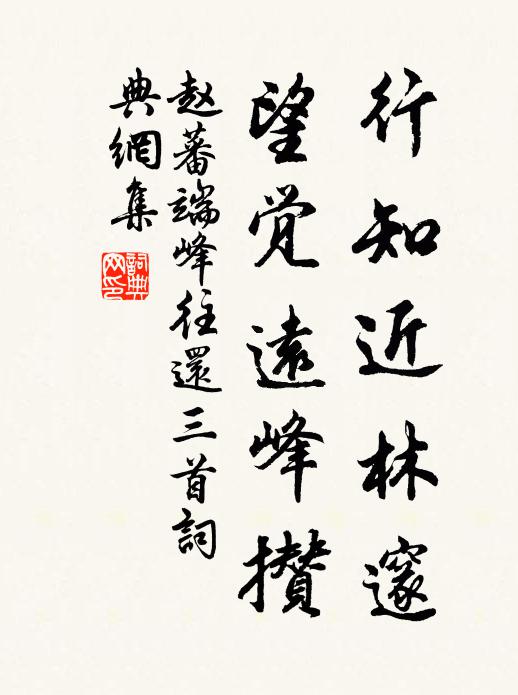 行知近林邃
望觉遠峰攅
赵蕃端峰往還三首詞
典網集
詞典网印